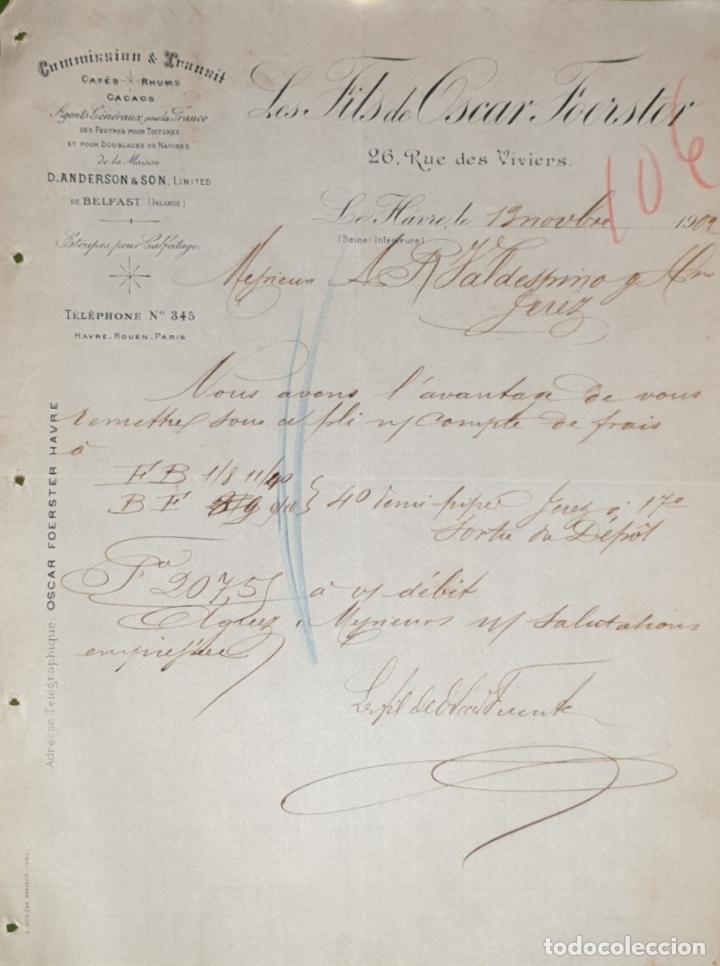 Commission & Transit
CAFÉS RHUMS
CACAOS
Agents Généraux pour la France
DES FEUTRES POUR TOITURES
ET POUR DOUBLAGES DE NAVIRES
de la Maison
D. ANDERSON & SON, LIMITED
DE BELFAST (IRLANDE)
Etoupes pour Calfatage
TÉLÉPHONE N° 345
HAVRE_ROUEN_PARIS
Adresse Télégraphique OSCAR FOERSTER HAVRE
Les Fils de Oscar Foerster
26, Rue des Viviers.
106
Le Hâvre, le 13 novbre 1902
(Seine-Inférieure)
Messieurs A R Valdespino y
Jerez
Nous avons l'avantage de vous
remettre sous ce pli n/ compte de frais
à
F B 1/8 11/40
B F 9/10 } 40 demi pipes Jerez à 17°
Sortie du Dépôt
Fcs 207,5 à v/ débit
Agréez, Messieurs n/ salutations
empressées
Les fils de Oscar Foerster
todocoleccion